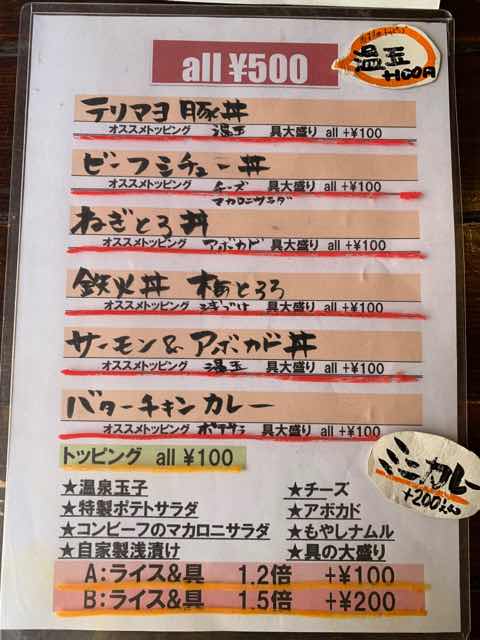 all ¥500
温玉
+100円
テリマヨ豚丼
オススメトッピング 温玉 具大盛り all +¥100
ビーフシチュー丼
オススメトッピング チーズ 具大盛り all +¥100
マカロニサラダ
ねぎとろ丼
オススメトッピング アボカド 具大盛り all +¥100
鉄火丼 梅とろろ
オススメトッピング 具大盛り all +¥100
サーモン&アボカド丼
オススメトッピング 温玉 具大盛り all +¥100
バターチキンカレー
オススメトッピング ポテサラ 具大盛り all +¥100
トッピング all ¥100
ミニカレー
+200
★温泉玉子 ★チーズ
★特製ポテトサラダ ★アボカド
★コンビーフのマカロニサラダ ★もやしナムル
★自家製浅漬け ★具の大盛り
A:ライス&具 1.2倍 +¥100
B:ライス&具 1.5倍 +¥200